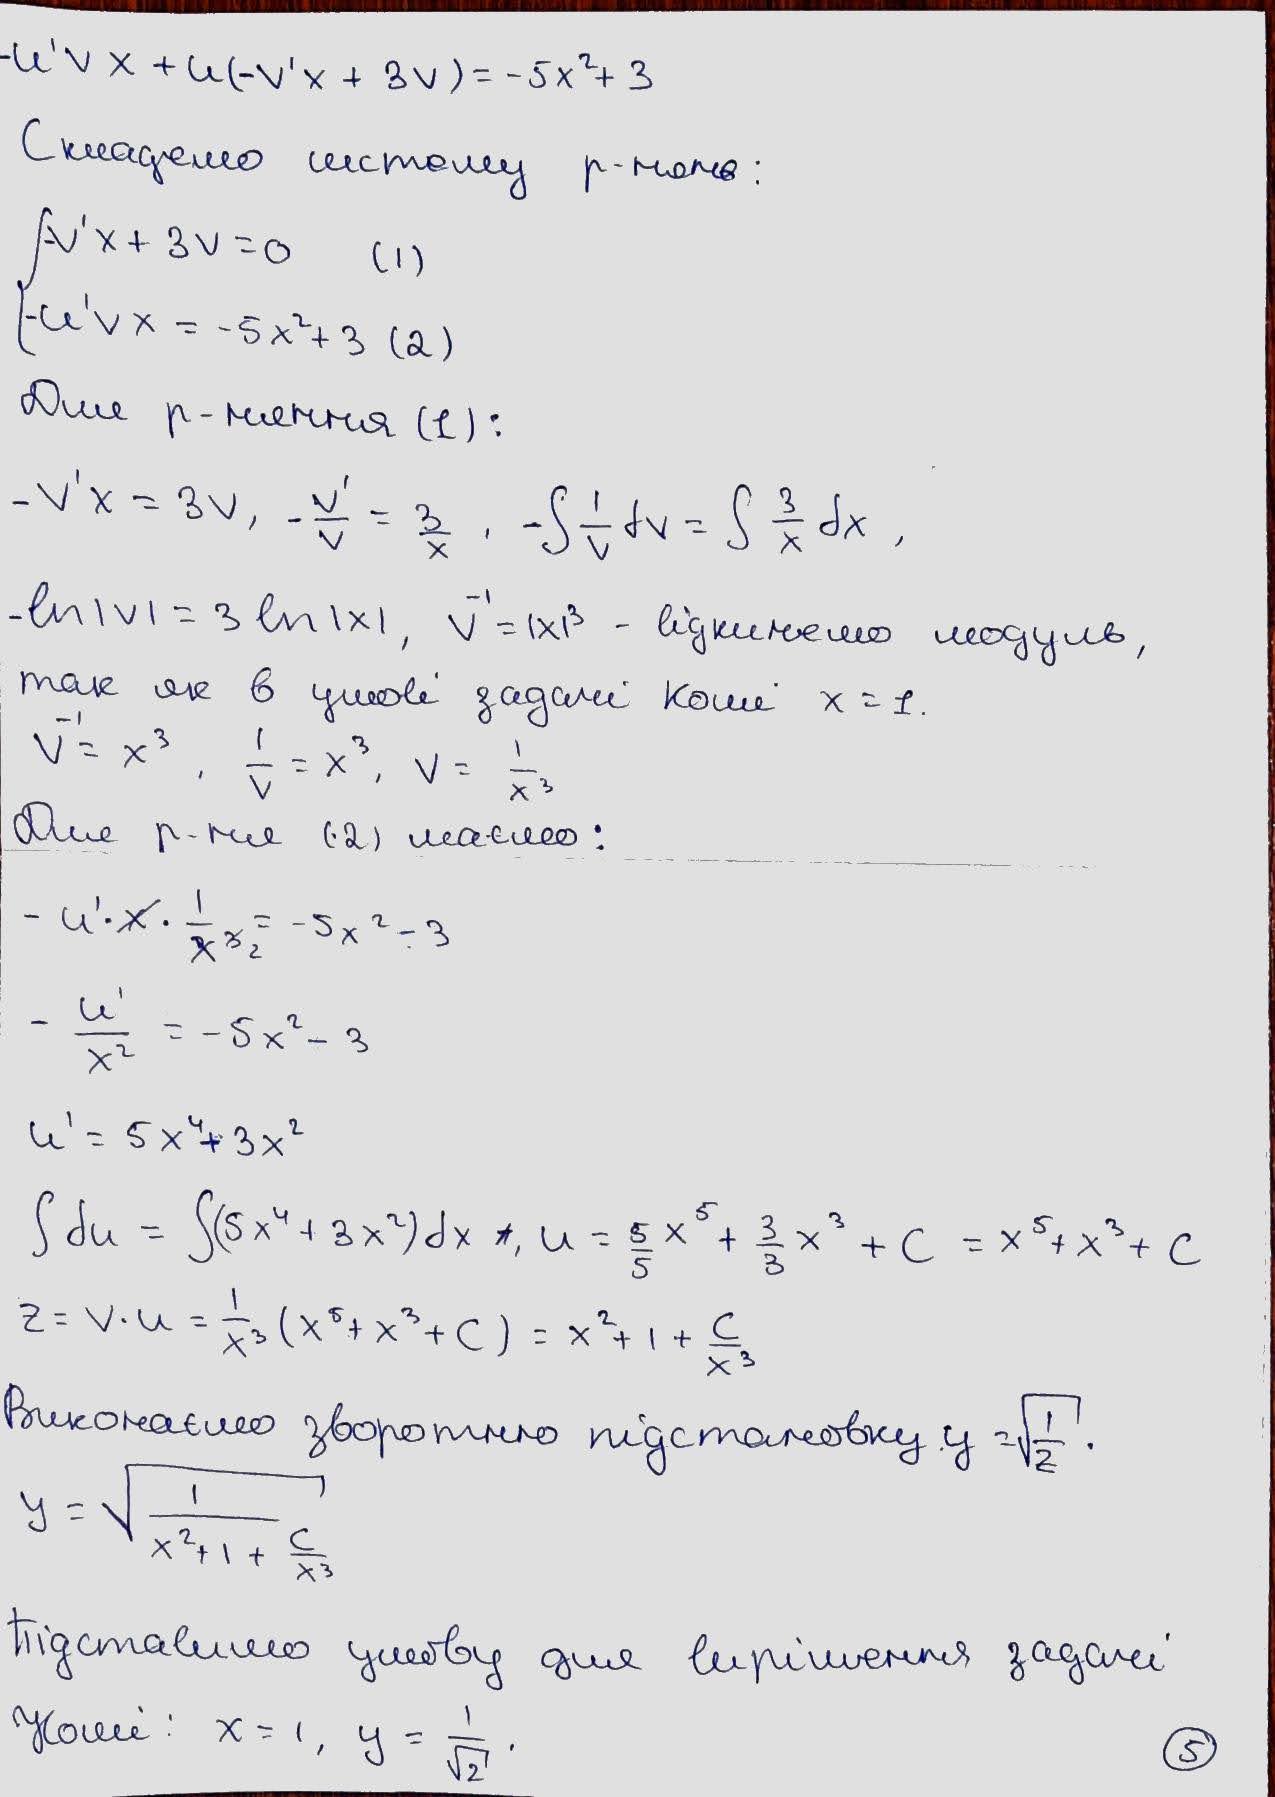 -u'vx + u(-v'x + 3v) = -5x²+ 3
Складемо систему р-нянь:
{-v'x + 3v = 0 (1)
{-u'vx = -5x²+ 3 (2)
Для р-няння (1):
-v'x = 3v, -v'/v = 3/x, -∫ 1/v dv = ∫ 3/x dx,
-ln|v| = 3 ln|x|, v⁻¹ = |x|³ - відкинемо модуль,
так як в умові задачі Коші x = 1.
v⁻¹ = x³, 1/v = x³, v = 1/x³
Для р-ня (2) маємо:
- u'·x· 1/x³ ₂ = -5x² - 3
- u'/x² = -5x² - 3
u' = 5x⁴ + 3x²
∫ du = ∫(5x⁴ + 3x²)dx, u = 5/5 x⁵ + 3/3 x³ + C = x⁵ + x³ + C
z = v·u = 1/x³ (x⁵ + x³ + C) = x² + 1 + C/x³
Виконаємо зворотню підстановку y = √(1/z).
y = √(1/(x² + 1 + C/x³))
Підставимо умову для вирішення задачі
Коші: x = 1, y = 1/√2.
5